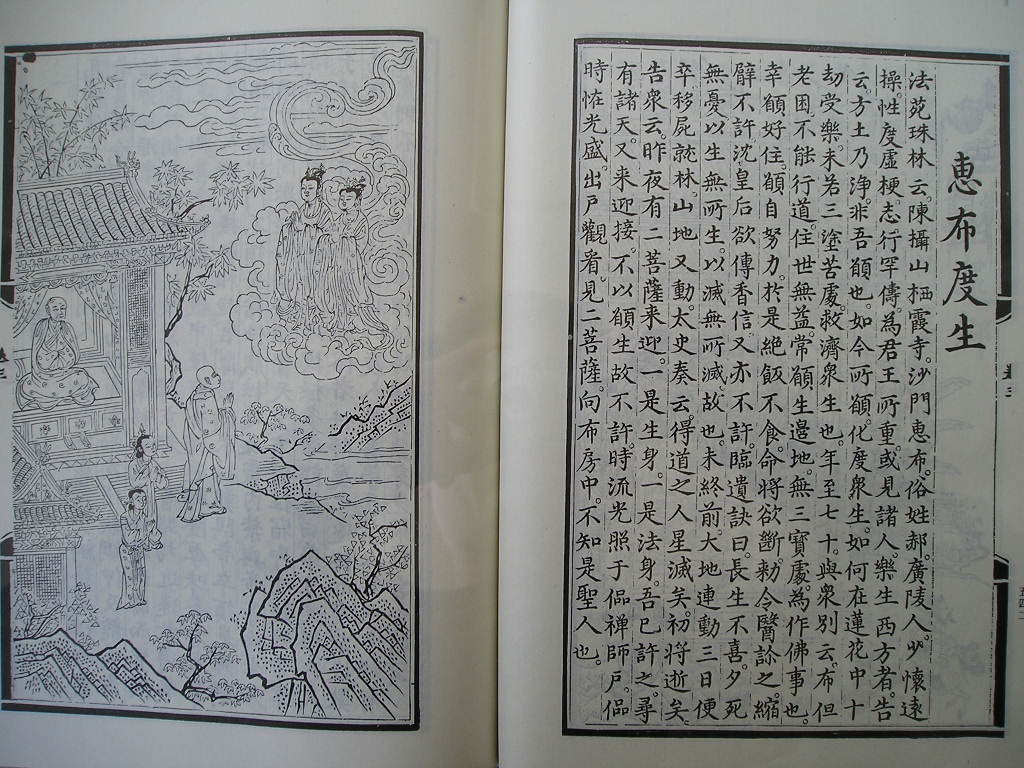 惠布度生
法苑珠林云。陳攝山栖霞寺。沙門惠布。俗姓郝。廣陵人。少懷遠
操。性度虛梗。志行罕傳。為君王所重。或見諸人。樂生西方者。告
云。方土乃淨。非吾願也。如今所願。化度眾生。如何在蓮花中十
劫受樂。未若三塗苦處。救濟眾生也。年至七十。與眾別云。布但
老困不能行道。住世無益。常願生邊地。無三寶處。為作佛事也。
幸願好住。願自努力。於是絕飯不食。命將欲斷。勑令醫診之。縮
臂不許。沈皇后欲傳香信。又亦不許。臨遺訣曰。長生不喜。夕死
無憂。以生無所生。以滅無所滅。故也。未終前。大地連動三日。便
卒。移屍就林。山地又動。太史奏云。得道之人星滅矣。初將逝矣。
告眾云。昨夜有二菩薩来迎。一是生身。一是法身。吾已許之。尋
有諸天。又来迎接。不以願生故不許。時流光照于傴禪師戶。傴
時恠光盛。出戶觀看。見二菩薩。向布房中。不知是聖人也。
卷三